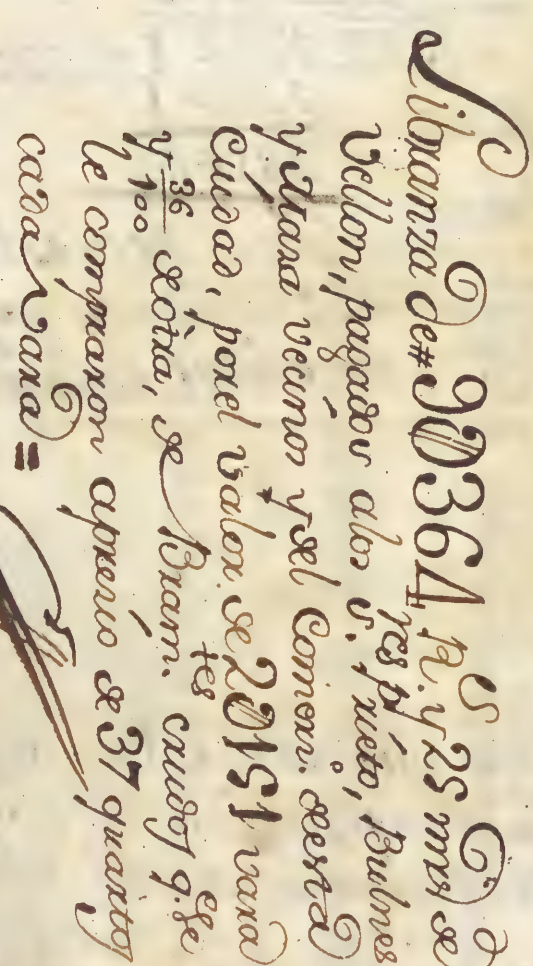 Libranza de # 90364 r.s y 25 mrs de
Vellon, pagados alos S.res Prieto, Bulnes
y vecinos y del Comerc.o de esta
Ciudad, por el valor de 20151 vara
y 36/100 de otra, de Bram.tes crudos q.e se
le compraron aprecio de 37 quartos
cada vara =